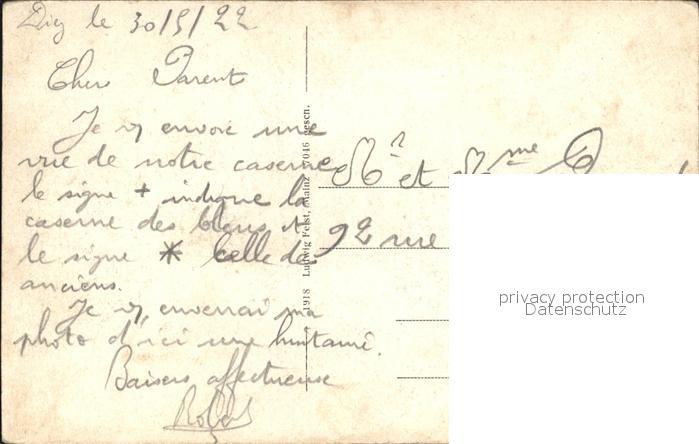 Diez le 30/5/22
Cher Parent
Je v envoie une
vue de notre caserne
le signe + indique la
caserne des bleus et
le signe * celle des
anciens.
Je v, enverrai ma
photo d'ici une huitaine.
Baisers affectueuse
Robert
1918 Ludwig Feist, Mainz 7046 gesch.
Mr et Mme
92 rue
privacy protection
Datenschutz